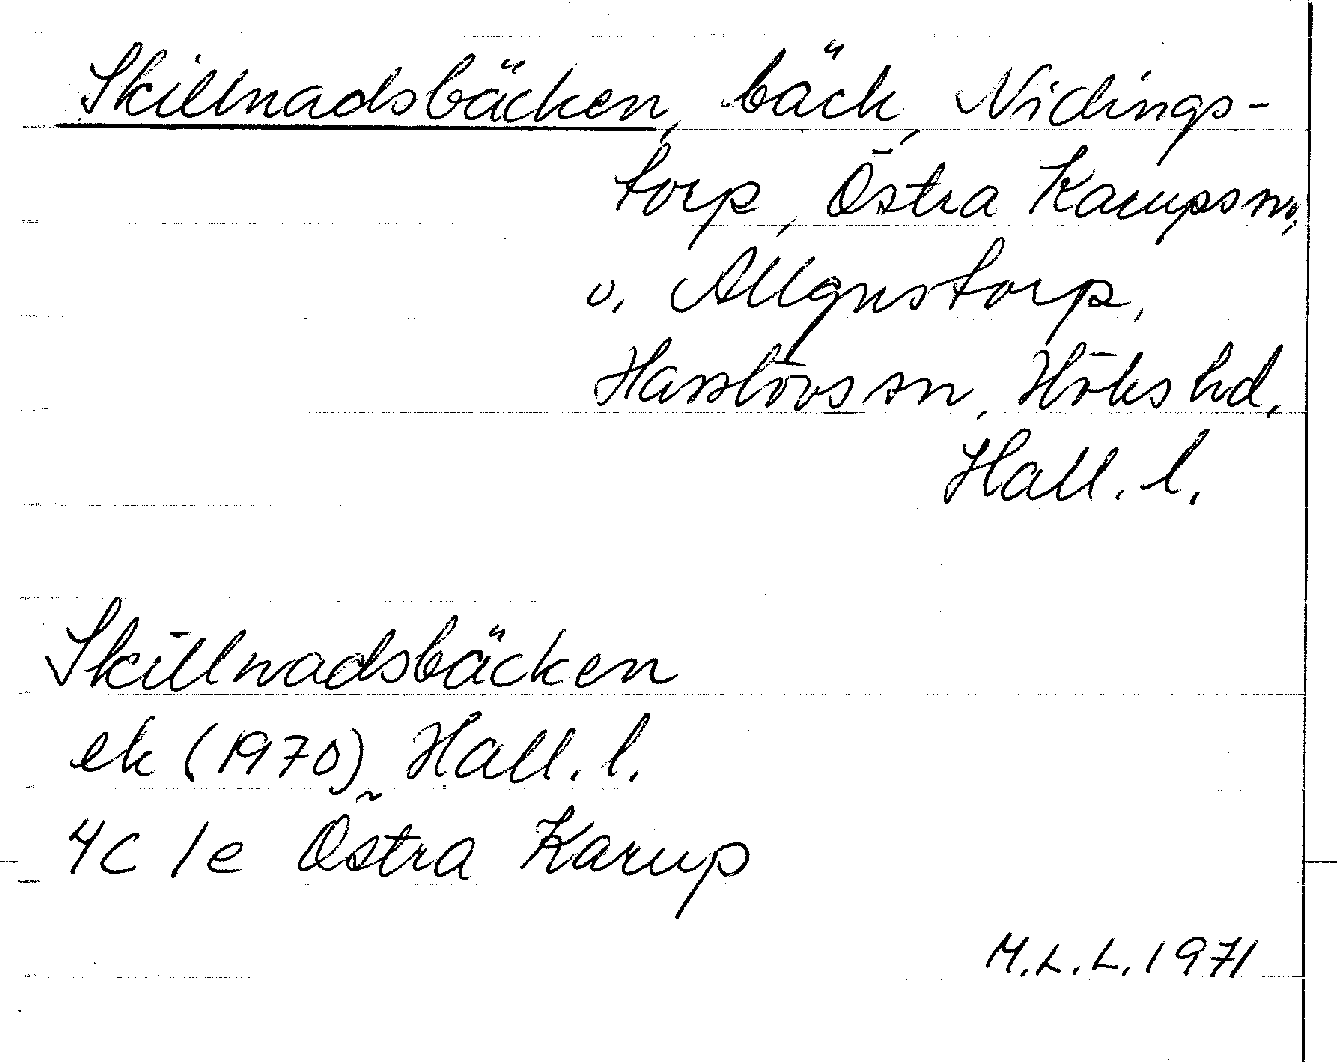 Skillnadsbäcken, bäck, Nidings-
torp, Östra Karups sn,
o. Allgustorp,
Hasslövs sn, Höks hd,
Hall. l.
Skillnadsbäcken
ek (1970) Hall. l.
4C 1e Östra Karup
M.L.L. 1971